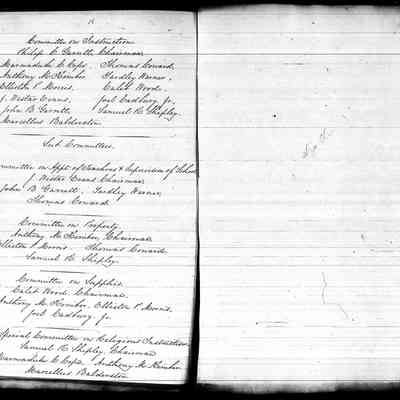 Committee on Instruction
Philip C. Garrett, Chairman,
Marmaduke C. Cope, Thomas Conard,
Anthony M. Kimber, Yardley Warner,
Elliston P. Morris, Caleb Wood,
J. Wistar Evans, Joel Cadbury, Jr.
John B. Garrett, Samuel R. Shipley,
Marcellus Balderston
Sub Committees.
ommittee on Appt. of Teachers & Supervision of School
J. Wistar Evans Chairman,
John B. Garrett, Yardley Warner,
Thomas Conard
Committee on Property.
Anthony M. Kimber, Chairman
Elliston P. Morris, Thomas Conard
Samuel R. Shipley.
Committee on Supplies
Caleb Wood, Chairman
Anthony M. Kimber, Elliston P. Morris,
Joel Cadbury, Jr.
Special Committee on Religious Instruction
Samuel R. Shipley, Chairman
Marmaduke C. Cope, Anthony M. Kimber
Marcellus Balderston